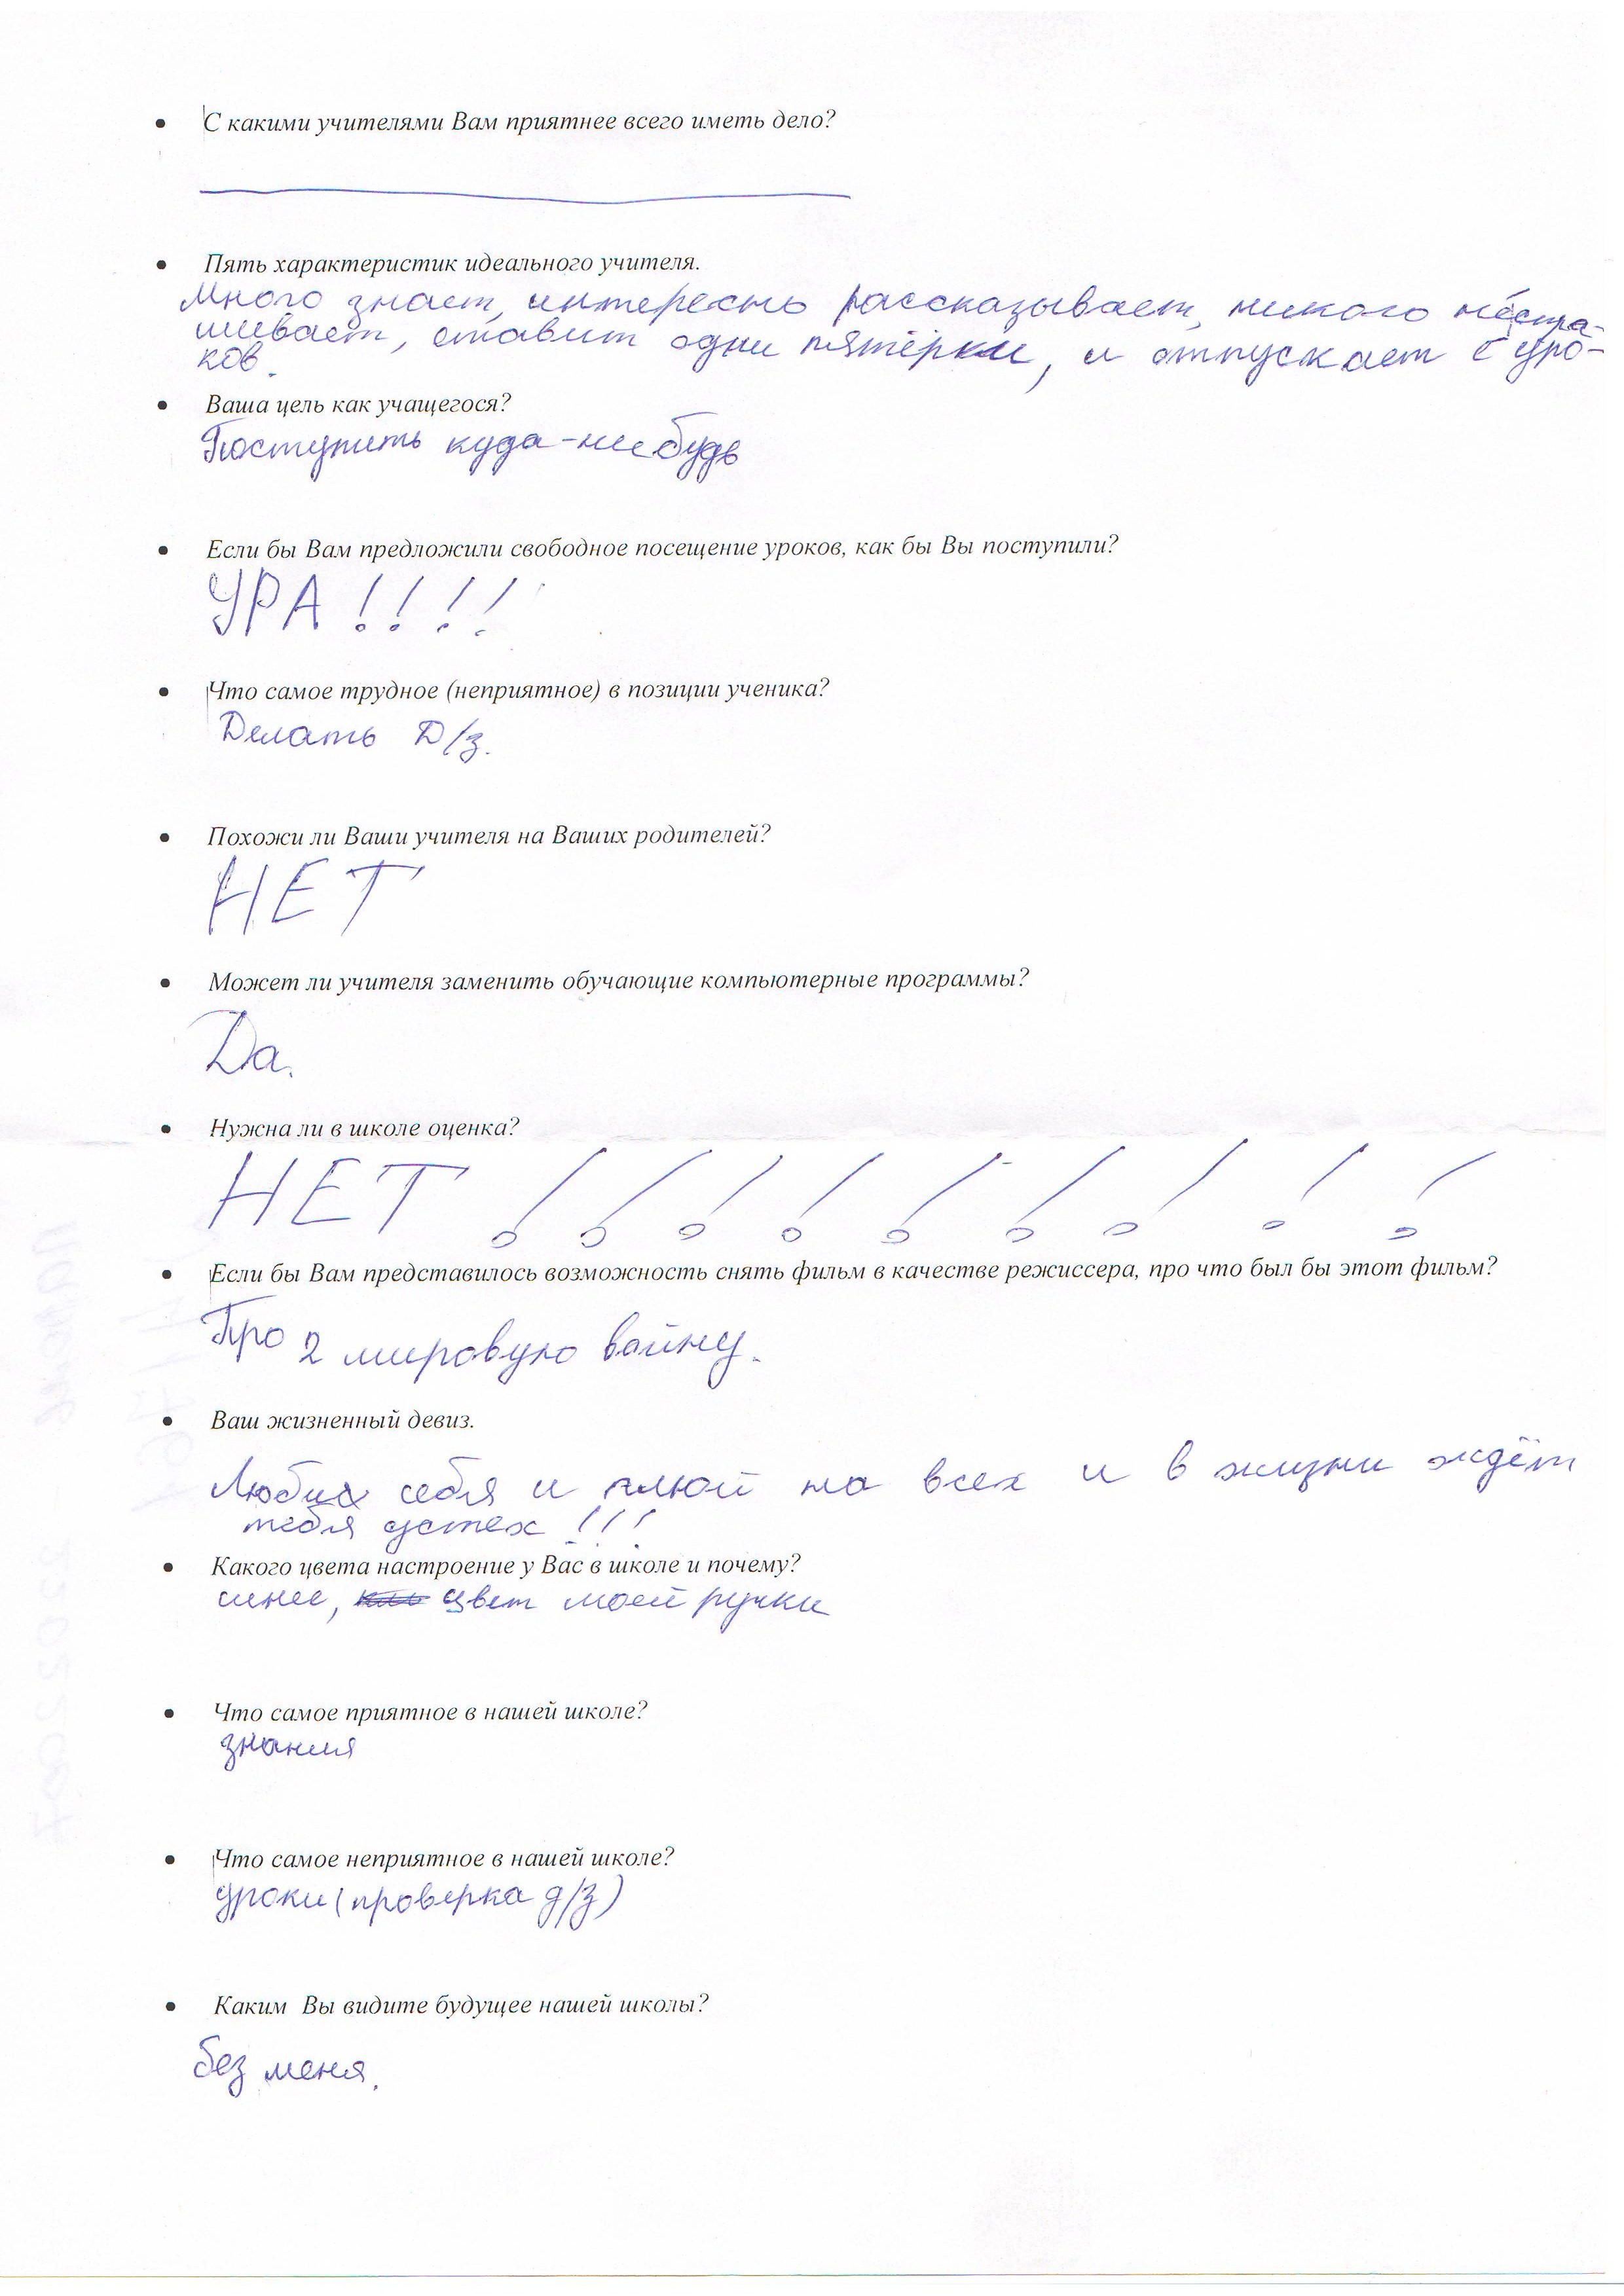 • С какими учителями Вам приятнее всего иметь дело?
• Пять характеристик идеального учителя.
Много знает, интересно рассказывает, никого не спра-
шивает, ставит одни пятёрки, и отпускает с уро-
ков.
• Ваша цель как учащегося?
Поступить куда-нибудь
• Если бы Вам предложили свободное посещение уроков, как бы Вы поступили?
УРА!!!!
• Что самое трудное (неприятное) в позиции ученика?
Делать Д/з.
• Похожи ли Ваши учителя на Ваших родителей?
НЕТ
• Может ли учителя заменить обучающие компьютерные программы?
Да.
• Нужна ли в школе оценка?
НЕТ !!!!!!!!!
• Если бы Вам представилось возможность снять фильм в качестве режиссера, про что был бы этот фильм?
Про 2 мировую войну.
• Ваш жизненный девиз.
Люби себя и плюй на всех и в жизни ждёт
тебя успех!!!
• Какого цвета настроение у Вас в школе и почему?
синее, цвет моей ручки
• Что самое приятное в нашей школе?
знания
• Что самое неприятное в нашей школе?
уроки (проверка д/з)
• Каким Вы видите будущее нашей школы?
без меня.